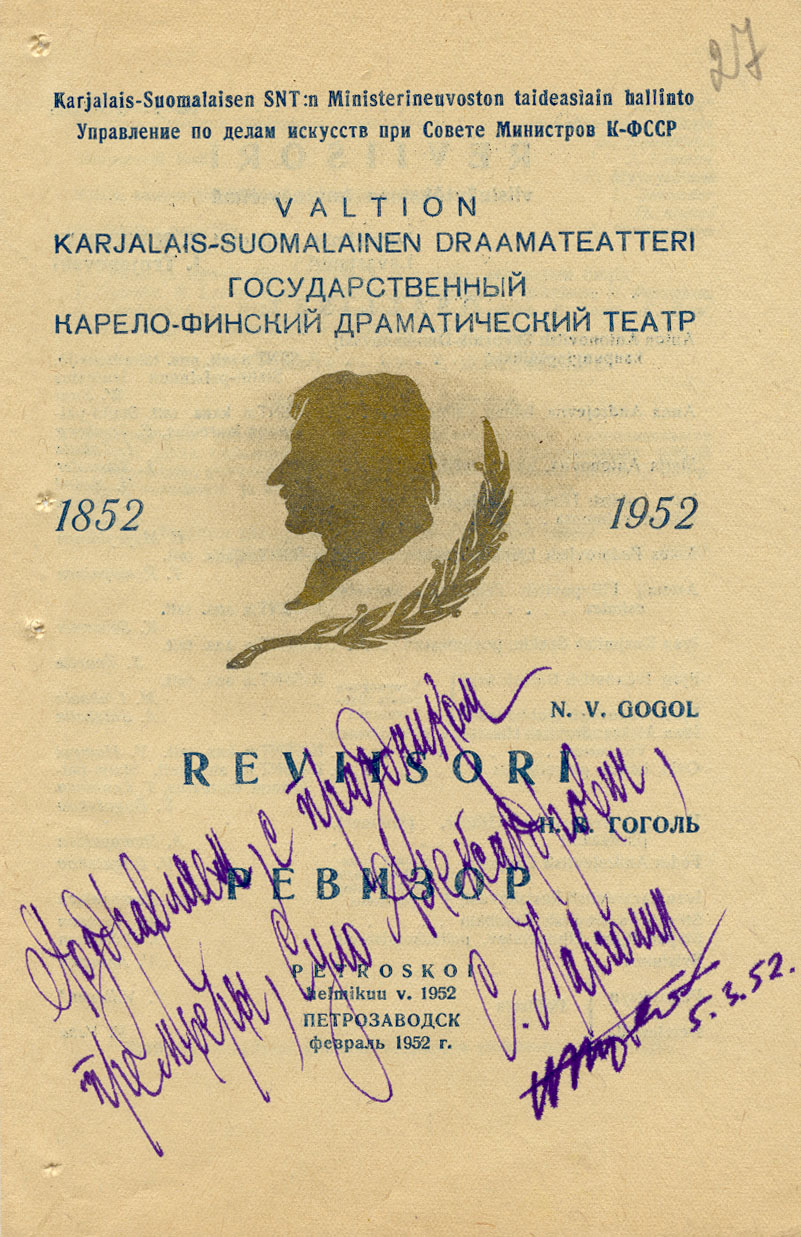 27
Karjalais-Suomalaisen SNT:n Ministerineuvoston taideasiain hallinto
Управление по делам искусств при Совете Министров К-ФССР
VALTION
KARJALAIS-SUOMALAINEN DRAAMATEATTERI
ГОСУДАРСТВЕННЫЙ
КАРЕЛО-ФИНСКИЙ ДРАМАТИЧЕСКИЙ ТЕАТР
1852
1952
N. V. GOGOL
REVIISORI
Н. В. ГОГОЛЬ
РЕВИЗОР
PETROSKOI
helmikuu v. 1952
ПЕТРОЗАВОДСК
февраль 1952 г.
Поздравляем с праздником
премьеры, Суло Александрович,
С. Марголин
5.3.52.